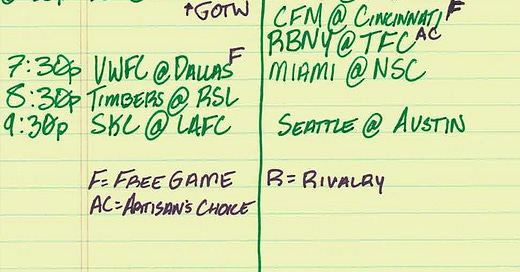 ↑GOTW
CFM @ CINCINNATI F
RBNY @ TFC AC
7:30p VWFC @ DALLAS F MIAMI @ NSC
8:30p TIMBERS @ RSL
9:30p SKC @ LAFC SEATTLE @ AUSTIN
F= FREE GAME R= RIVALRY
AC= ARTISAN'S CHOICE